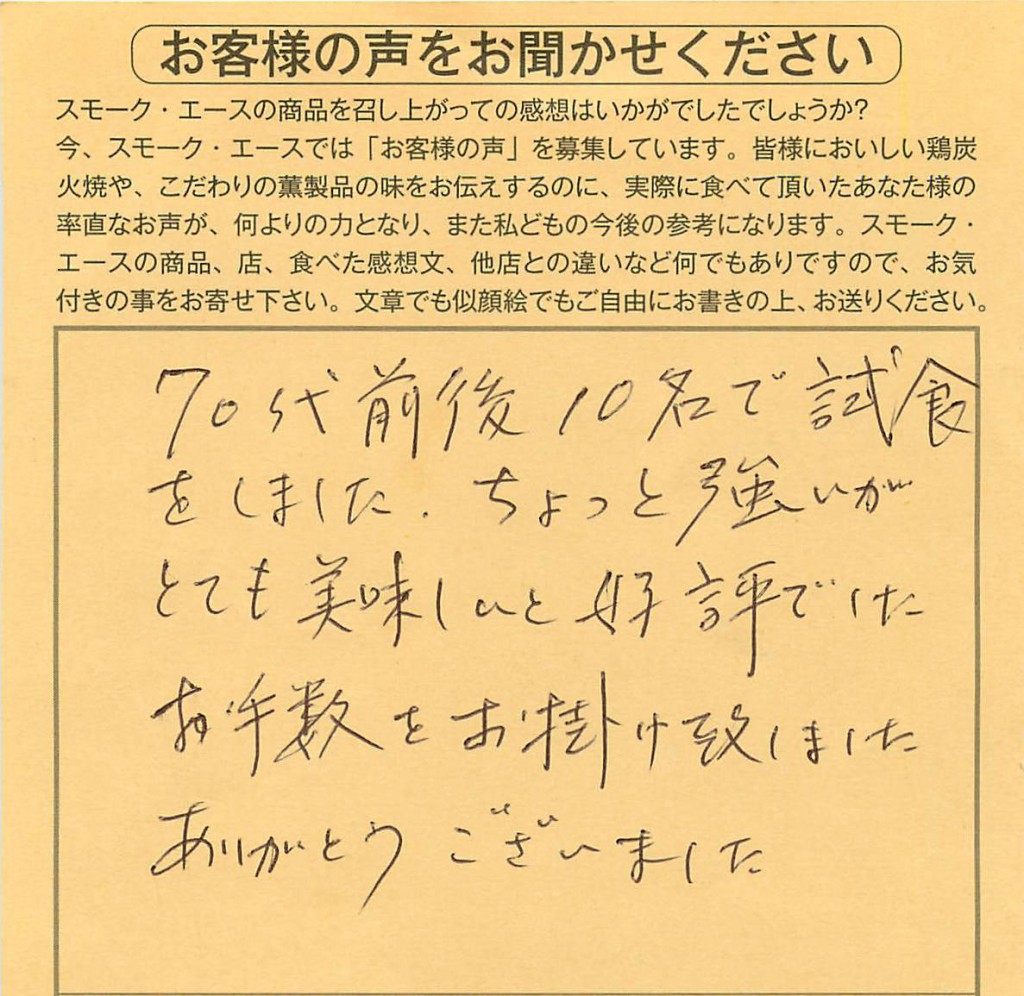 お客様の声をお聞かせください
スモーク・エースの商品を召し上がっての感想はいかがでしたでしょうか?
今、スモーク・エースでは「お客様の声」を募集しています。皆様においしい鶏炭
火焼や、こだわりの薫製品の味をお伝えするのに、実際に食べて頂いたあなた様の
率直なお声が、何よりの力となり、また私どもの今後の参考になります。スモーク・
エースの商品、店、食べた感想文、他店との違いなど何でもありですので、お気
付きの事をお寄せ下さい。文章でも似顔絵でもご自由にお書きの上、お送りください。
70代前後10名で試食
をしました.ちょっと強いが
とても美味しいと好評でした
お手数をお掛け致しました
ありがとうございました